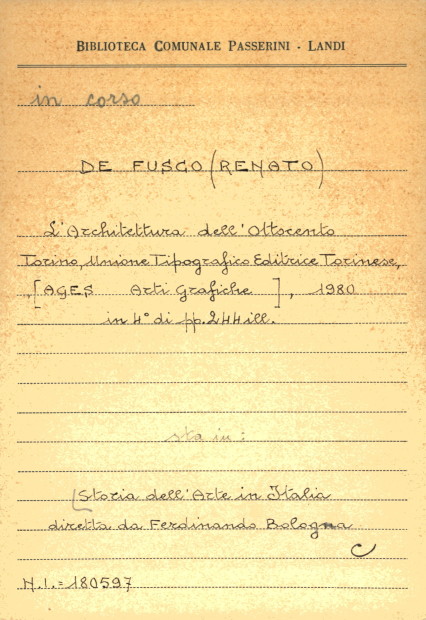 BIBLIOTECA COMUNALE PASSERINI - LANDI
in corso
DE FUSCO (RENATO)
L'Architettura dell'Ottocento
Torino, Unione Tipografico Editrice Torinese,
[AGES Arti Grafiche], 1980
in 4° di pp. 244 ill.
sta in:
(Storia dell'Arte in Italia
diretta da Ferdinando Bologna
N.I. = 180597